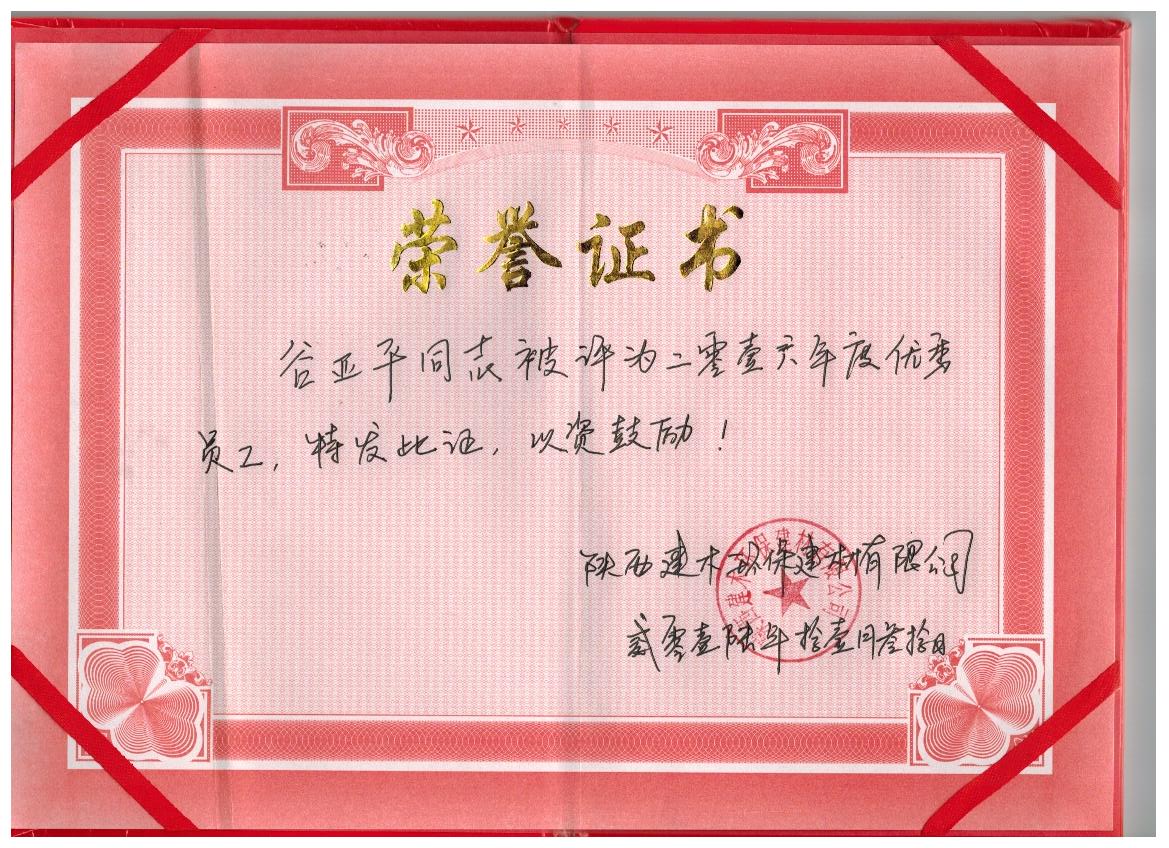 荣誉证书
谷亚平同志被评为二零壹六年度优秀
员工，特发此证，以资鼓励！
陕西建木环保建材有限公司
贰零壹陆年拾壹月叁拾日
陕西建木环保建材有限公司